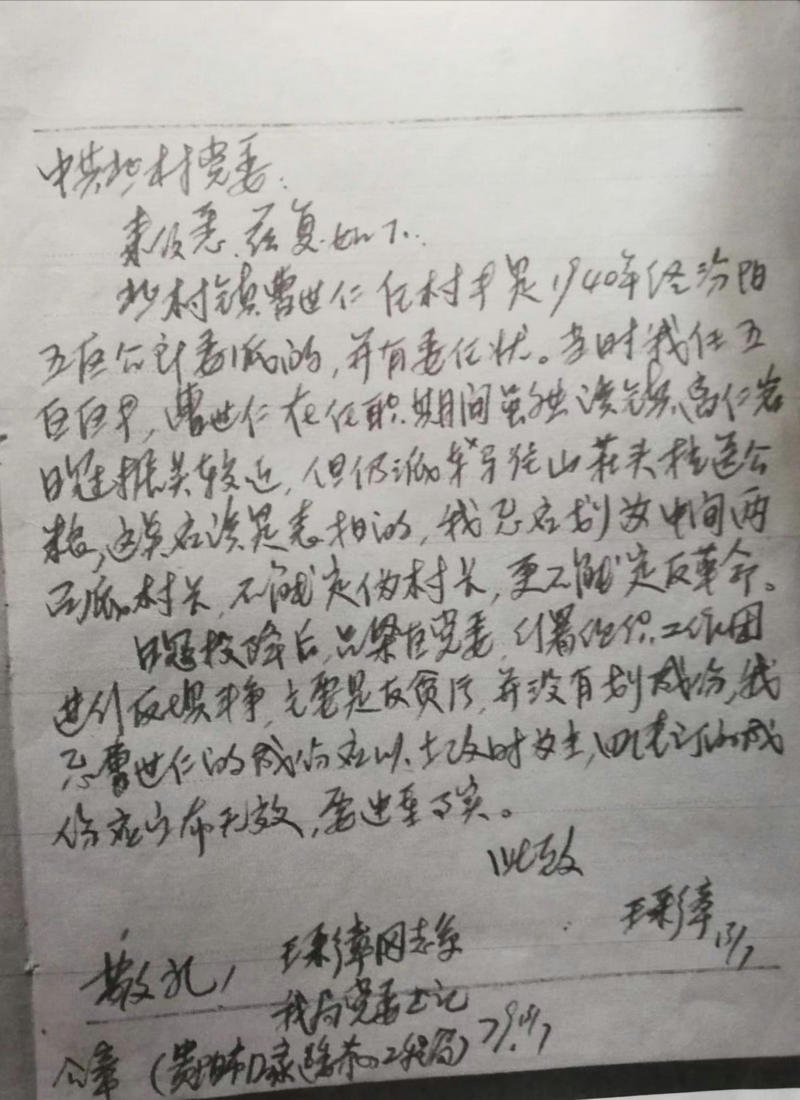 中共杏村党委:
来信悉、兹复如下:
村镇曹世仁任村长是1940年经汾阳
五区公所委派的,并有委任状。当时我任五
区区长,曹世仁在任职期间虽然该镇离仁岩
日寇据点较近,但仍派车马往山庄头村送公
粮,这点应该是表扬的,我认应划为中间两
面派村长,不能定伪村长,更不能定反革命。
日寇投降后,吕梁区党委、行署组织工作团
进行反斗争,主要是反贪污,并没有划成份,我
认曹世仁的成份应以土改时为主,四清订的成
份应宣布无效,要事实。
此致
敬礼!
王彩璋 15/7
王彩璋同志系
我局党委书记
公章(贵阳市工程局)79.